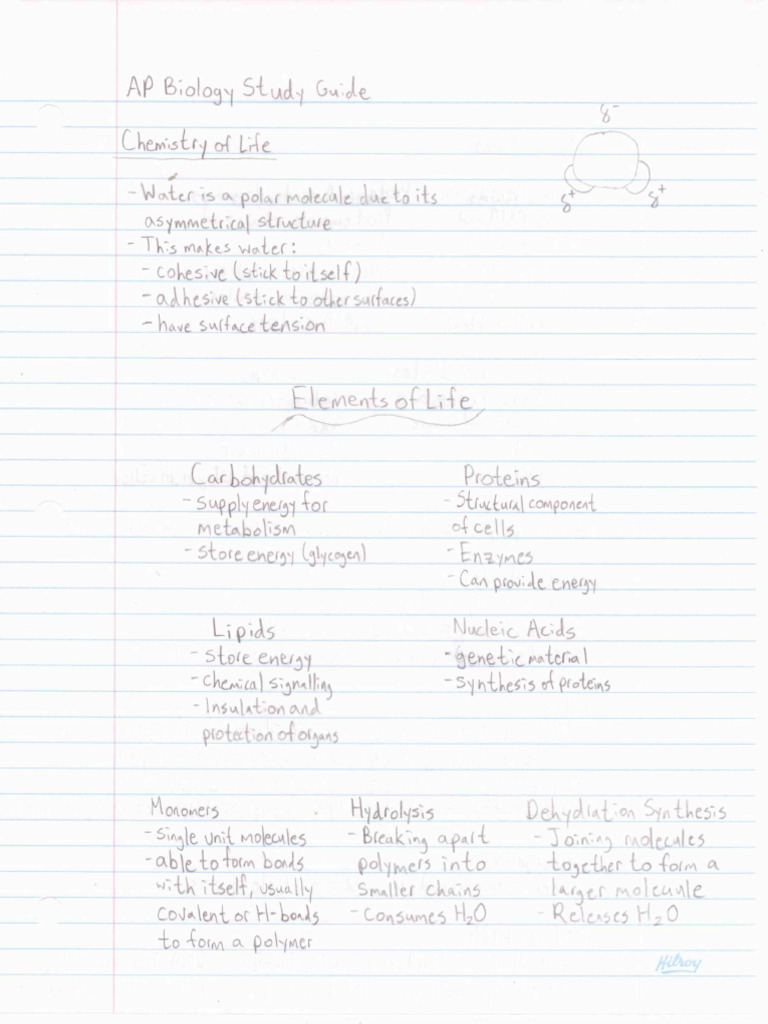 AP Biology Study Guide
δ-
δ+
δ+
Chemistry of Life
- Water is a polar molecule due to its
asymmetrical structure
- This makes water:
- cohesive (stick to itself)
- adhesive (stick to other surfaces)
- have surface tension
Elements of Life
Carbohydrates
- Supply energy for
metabolism
- Store energy (glycogen)
Proteins
- Structural component
of cells
- Enzymes
- Can provide energy
Lipids
- Store energy
- Chemical signalling
- Insulation and
protection of organs
Nucleic Acids
- genetic material
- synthesis of proteins
Monomers
- Single unit molecules
- able to form bonds
with itself, usually
covalent or H-bonds
to form a polymer
Hydrolysis
- Breaking apart
polymers into
smaller chains
- Consumes H₂O
Dehydration Synthesis
- Joining molecules
together to form a
larger molecule
- Releases H₂O
Hilroy